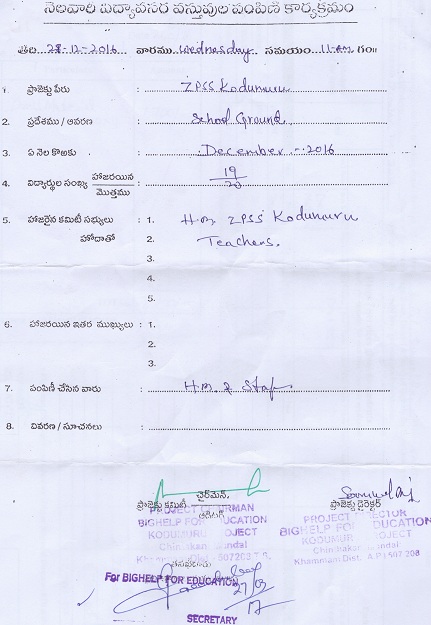 నెలవారి విద్యావసర వస్తువుల పంపిణి కార్యక్రమం
తేది 28-12-2016 వారము Wednesday సమయం 11-am గం॥
1. ప్రాజెక్టు పేరు : ZPSS Kodumuru
2. ప్రదేశము / ఆవరణ : School Ground
3. ఏ నెల కొఱకు : December - 2016
4. విద్యార్థుల సంఖ్య హాజరయిన / మొత్తము : 19 / 20
5. హాజరైన కమిటీ సభ్యులు : 1. H.m ZPSS Kodumuru
హోదాతో 2. Teachers.
3.
4.
5.
6. హాజరయిన ఇతర ముఖ్యులు : 1.
2.
3.
7. పంపిణీ చేసిన వారు : H.M. & Staff
8. వివరణ / సూచనలు :
ప్రాజెక్టు కమిటీ చైర్మెన్, ప్రాజెక్టు డైరెక్టర్
PROJECT CHAIRMAN
BIGHELP FOR EDUCATION
KODUMURU PROJECT
PROJECT DIRECTOR
BIGHELP FOR EDUCATION
KODUMUR PROJECT
Khammam Dist. A.P.) 507 208
For BIGHELP FOR EDUCATION
SECRETARY